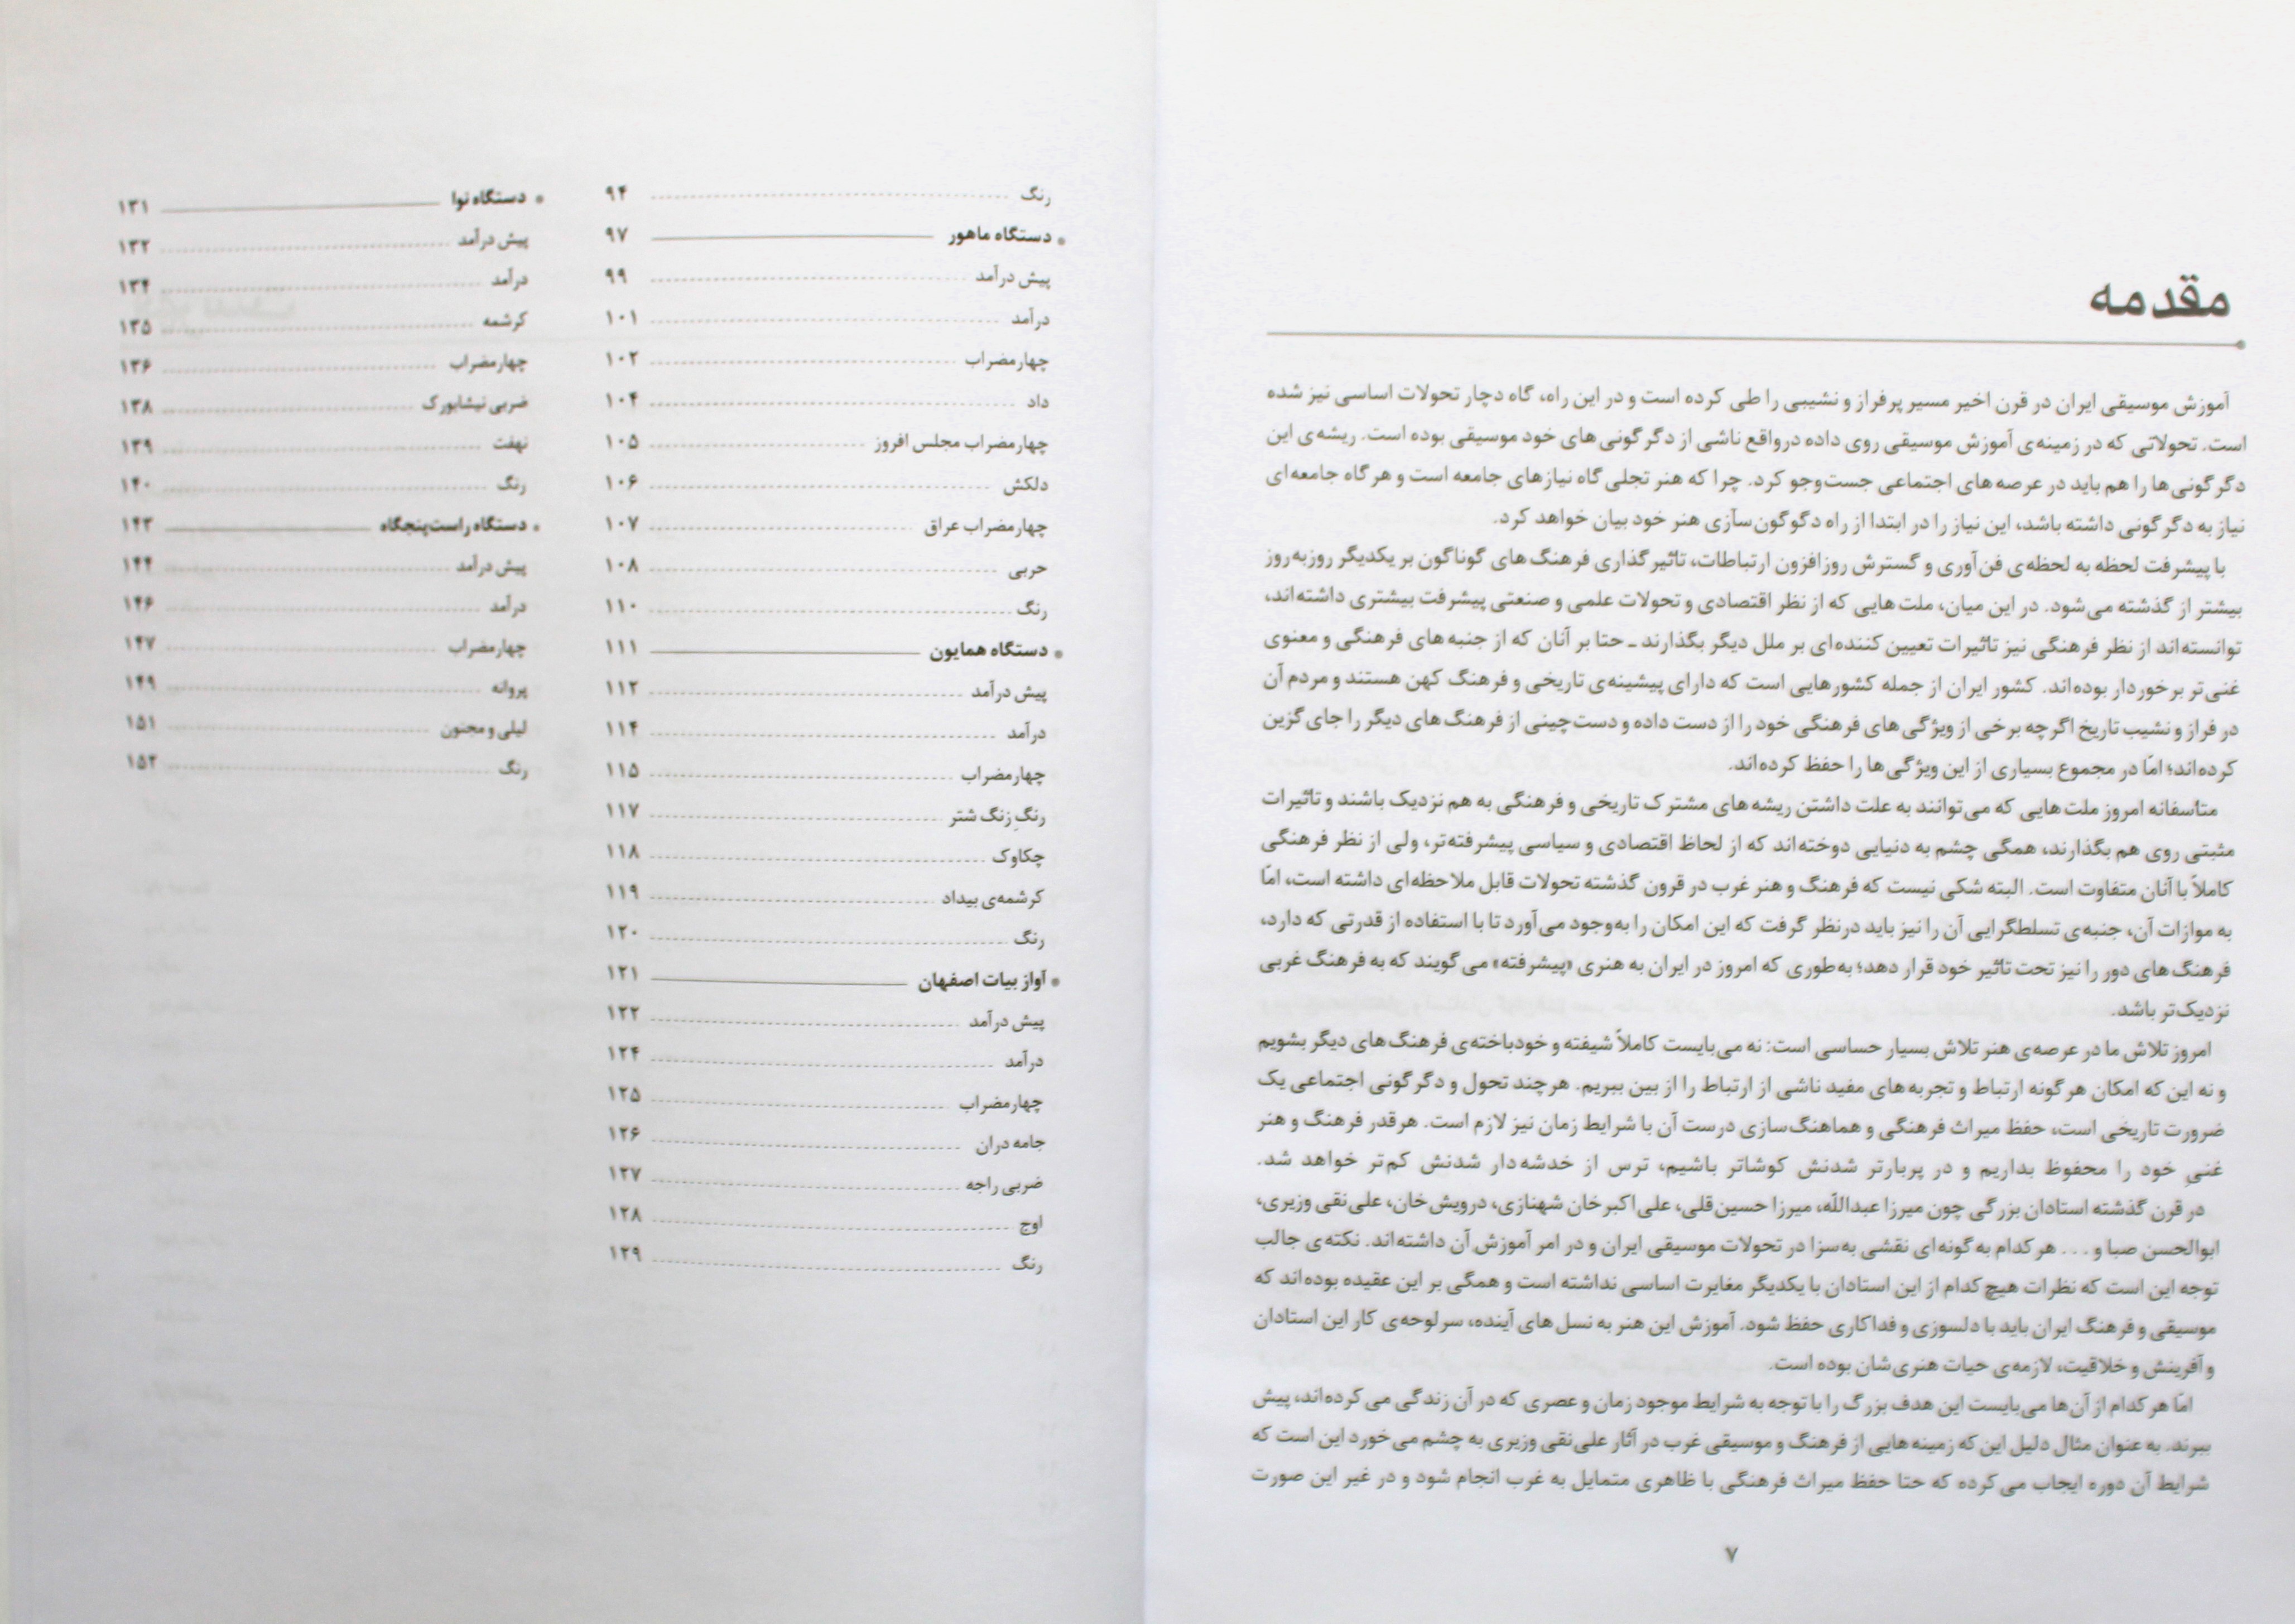 مقدمه
آموزش موسیقی ایران در قرن اخیر مسیر پرفراز و نشیبی را طی کرده است و در این راه، گاه دچار تحولات اساسی نیز شده
است. تحولاتی که در زمینه‌ی آموزش موسیقی روی داده درواقع ناشی از دگرگونی‌های خود موسیقی بوده است. ریشه‌ی این
دگرگونی‌ها را هم باید در عرصه‌های اجتماعی جست‌وجو کرد. چرا که هنر تجلی گاه نیازهای جامعه است و هرگاه جامعه‌ای
نیاز به دگرگونی داشته باشد، این نیاز را در ابتدا از راه دگوگون‌سازی هنر خود بیان خواهد کرد.
با پیشرفت لحظه به لحظه‌ی فن‌آوری و گسترش روزافزون ارتباطات، تاثیرگذاری فرهنگ‌های گوناگون بر یکدیگر روزبه‌روز
بیشتر از گذشته می‌شود. در این میان، ملت‌هایی که از نظر اقتصادی و تحولات علمی و صنعتی پیشرفت بیشتری داشته‌اند،
توانسته‌اند از نظر فرهنگی نیز تاثیرات تعیین کننده‌ای بر ملل دیگر بگذارند ـ حتا بر آنان که از جنبه‌های فرهنگی و معنوی
غنی‌تر برخوردار بوده‌اند. کشور ایران از جمله کشورهایی است که دارای پیشینه‌ی تاریخی و فرهنگ کهن هستند و مردم آن
در فراز و نشیب تاریخ اگرچه برخی از ویژگی‌های فرهنگی خود را از دست داده و دست‌چینی از فرهنگ‌های دیگر را جای گزین
کرده‌اند؛ امّا در مجموع بسیاری از این ویژگی‌ها را حفظ کرده‌اند.
متأسفانه امروز ملت‌هایی که می‌توانند به علت داشتن ریشه‌های مشترک تاریخی و فرهنگی به هم نزدیک باشند و تاثیرات
مثبتی روی هم بگذارند، همگی چشم به دنیایی دوخته‌اند که از لحاظ اقتصادی و سیاسی پیشرفته‌تر، ولی از نظر فرهنگی
کاملاً با آنان متفاوت است. البته شکی نیست که فرهنگ و هنر غرب در قرون گذشته تحولات قابل ملاحظه‌ای داشته است، امّا
به موازات آن، جنبه‌ی تسلطگرایی آن را نیز باید درنظر گرفت که این امکان را به‌وجود می‌آورد تا با استفاده از قدرتی که دارد،
فرهنگ‌های دور را نیز تحت تاثیر خود قرار دهد؛ به‌طوری که امروز در ایران به هنری «پیشرفته» می‌گویند که به فرهنگ غربی
نزدیک‌تر باشد.
امروز تلاش ما در عرصه‌ی هنر تلاش بسیار حساسی است: نه می‌بایست کاملاً شیفته و خودباخته‌ی فرهنگ‌های دیگر بشویم
و نه این که امکان هرگونه ارتباط و تجربه‌های مفید ناشی از ارتباط را از بین ببریم. هرچند تحول و دگرگونی اجتماعی یک
ضرورت تاریخی است، حفظ میراث فرهنگی و هماهنگ‌سازی درست آن با شرایط زمان نیز لازم است. هرقدر فرهنگ و هنر
غنیِ خود را محفوظ بداریم و در پربارتر شدنش کوشاتر باشیم، ترس از خدشه‌دار شدنش کم‌تر خواهد شد.
در قرن گذشته استادان بزرگی چون میرزا عبداللّه، میرزا حسین‌قلی، علی‌اکبرخان شهنازی، درویش‌خان، علی‌نقی وزیری،
ابوالحسن صبا و . . . هرکدام به‌گونه‌ای نقشی به‌سزا در تحولات موسیقی ایران و در امر آموزش آن داشته‌اند. نکته‌ی جالب
توجه این است که نظرات هیچ‌کدام از این استادان با یکدیگر مغایرت اساسی نداشته است و همگی بر این عقیده بوده‌اند که
موسیقی و فرهنگ ایران باید با دلسوزی و فداکاری حفظ شود. آموزش این هنر به نسل‌های آینده، سرلوحه‌ی کار این استادان
و آفرینش و خلاقیت، لازمه‌ی حیات هنری‌شان بوده است.
امّا هرکدام از آن‌ها می‌بایست این هدف بزرگ را با توجه به شرایط موجود زمان و عصری که در آن زندگی می‌کرده‌اند، پیش
ببرند. به عنوان مثال دلیل این‌که زمینه‌هایی از فرهنگ و موسیقی غرب در آثار علی‌نقی وزیری به چشم می‌خورد این است که
شرایط آن دوره ایجاب می‌کرده که حتا حفظ میراث فرهنگی با ظاهری متمایل به غرب انجام شود و در غیر این صورت
۷
رنگ ۹۴
• دستگاه ماهور ۹۷
پیش درآمد ۹۹
درآمد ۱۰۱
چهارمضراب ۱۰۲
داد ۱۰۴
چهارمضراب مجلس افروز ۱۰۵
دلکش ۱۰۶
چهارمضراب عراق ۱۰۷
حربی ۱۰۸
رنگ ۱۱۰
• دستگاه همایون ۱۱۱
پیش درآمد ۱۱۲
درآمد ۱۱۴
چهارمضراب ۱۱۵
رنگِ زنگ شتر ۱۱۷
چکاوک ۱۱۸
کرشمه‌ی بیداد ۱۱۹
رنگ ۱۲۰
• آواز بیات اصفهان ۱۲۱
پیش درآمد ۱۲۲
درآمد ۱۲۴
چهارمضراب ۱۲۵
جامه دران ۱۲۶
ضربی راجه ۱۲۷
اوج ۱۲۸
رنگ ۱۲۹
• دستگاه نوا ۱۳۱
پیش درآمد ۱۳۲
درآمد ۱۳۴
کرشمه ۱۳۵
چهارمضراب ۱۳۶
ضربی نیشابورک ۱۳۸
نهفت ۱۳۹
رنگ ۱۴۰
• دستگاه راست‌پنجگاه ۱۴۳
پیش درآمد ۱۴۴
درآمد ۱۴۶
چهارمضراب ۱۴۷
پروانه ۱۴۹
لیلی و مجنون ۱۵۱
رنگ ۱۵۲